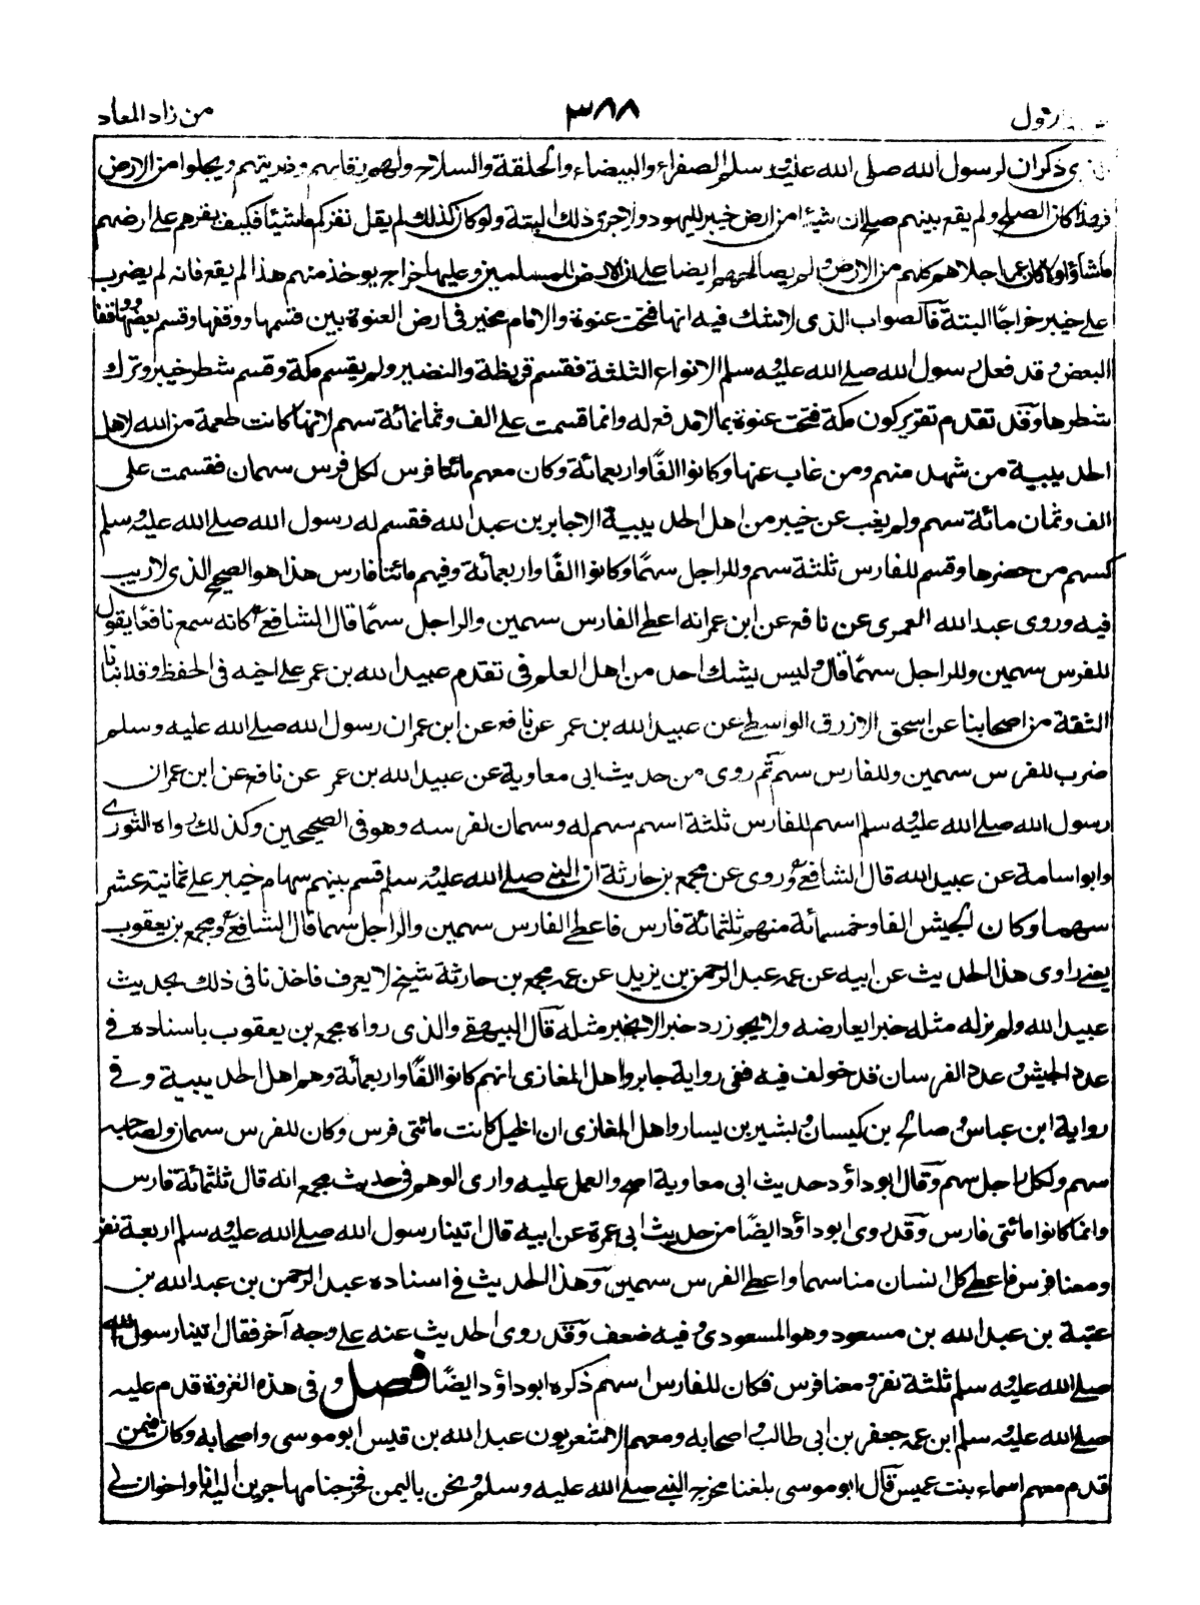 من زاد المعاد
٣٨٨
ذكر ان لرسول الله صلى الله عليه وسلم الصفراء والبيضاء والحلقة والسلاح ولهم رقابهم وذريتهم ويجلوا من الارض
فهذا كان الصلح ولم يقع بينهم صلح ان شيئا من ارض خيبر لليهود ولا جرى ذلك البتة ولو كان كذلك لم يقل نقركم ما شئنا فكيف يقرهم على ارضهم
ما شاؤا ولا كان عمر اجلاهم كلهم من الارض ولم يصالحهم ايضا على ان الارض للمسلمين وعليها خراج يوخذ منهم هذا لم يقع فانه لم يضرب
على خيبر خراجًا البتة فالصواب الذى لا شك فيه انها فتحت عنوة والامام مخير فى ارض العنوة بين قسمها ووقفها وقسم بعضها ووقف
البعض وقد فعل رسول الله صلى الله عليه وسلم الانواع الثلثة فقسم قريظة والنضير ولم يقسم مكة وقسم شطر خيبر وترك
شطرها وقد تقدم تقرير كون مكة فتحت عنوة بما لا مدفع له وانما قسمت على الف وثمانمائة سهم لانها كانت طعمة من الله لاهل
الحديبية من شهد منهم ومن غاب عنها وكانوا الفًا واربعمائة وكان معهم مائتا فرس لكل فرس سهمان فقسمت على
الف وثمان مائة سهم ولم يغب عن خيبر من اهل الحديبية الا جابر بن عبد الله فقسم له رسول الله صلى الله عليه وسلم
كسهم من حضرها وقسم للفارس ثلثة سهم وللراجل سهمًا وكانوا الفًا واربعمائة وفيهم مائتا فارس هذا هو الصحيح الذى لا ريب
فيه وروى عبد الله العمرى عن نافع عن ابن عمر انه اعطى الفارس سهمين والراجل سهمًا قال الشافعى كانه سمع نافعًا يقول
للفرس سهمين وللراجل سهمًا قال وليس يشك احد من اهل العلم فى تقدم عبيد الله بن عمر على اخيه فى الحفظ وقد انبانا
الثقة من اصحابنا عن اسحق الازرق الواسطى عن عبيد الله بن عمر عن نافع عن ابن عمر ان رسول الله صلى الله عليه وسلم
ضرب للفرس سهمين وللفارس سهم ثم روى من حديث ابى معاوية عن عبيد الله بن عمر عن نافع عن ابن عمر ان
رسول الله صلى الله عليه وسلم اسهم للفارس ثلثة اسهم سهم له وسهمان لفرسه وهو فى الصحيحين وكذلك رواه الثورى
وابو اسامة عن عبيد الله قال الشافعى وروى عن مجمع بن حارثة ان النبى صلى الله عليه وسلم قسم بينهم سهام خيبر على ثمانية عشر
سهما وكان الجيش الفا وخمسمائة منهم ثلثمائة فارس فاعطى الفارس سهمين والراجل سهما قال الشافعى ومجمع بن يعقوب
يعنى راوى هذا الحديث عن ابيه عن عمه عبد الرحمن بن يزيد عن عمه مجمع بن حارثة شيخ لا يعرف فاخذنا فى ذلك بحديث
عبيد الله ولم نر له مثله خبرا يعارضه ولا يجوز رد خبر الا بخبر مثله قال البيهقى والذى رواه مجمع بن يعقوب باسناده فى
عدد الجيش وعدد الفرسان قد خولف فيه ففى رواية جابر واهل المغازى انهم كانوا الفًا واربعمائة وهم اهل الحديبية وفى
رواية ابن عباس وصالح بن كيسان وبشير بن يسار واهل المغازى ان الخيل كانت مائتى فرس وكان للفرس سهمان ولصاحبه
سهم ولكل راجل سهم وقال ابو داؤد حديث ابى معاوية اصح والعمل عليه وارى الوهم فى حديث مجمع انه قال ثلثمائة فارس
وانما كانوا مائتى فارس وقد روى ابو داؤد ايضًا من حديث ابى عمرة عن ابيه قال اتينا رسول الله صلى الله عليه وسلم اربعة نفر
ومعنا فرس فاعطى كل انسان منا سهما واعطى الفرس سهمين وهذا الحديث فى اسناده عبد الرحمن بن عبد الله بن
عتبة بن عبد الله بن مسعود وهو المسعودى وفيه ضعف وقد روى الحديث عنه على وجه آخر فقال اتينا رسول الله
صلى الله عليه وسلم ثلثة نفر ومعنا فرس فكان للفارس اسهم ذكره ابو داؤد ايضًا فصل وفى هذه الغزوة قدم عليه
صلى الله عليه وسلم ابن عمه جعفر بن ابى طالب واصحابه ومعهم الاشعريون عبد الله بن قيس ابو موسى واصحابه وكان فيمن
قدم معهم اسماء بنت عميس قال ابو موسى بلغنا مخرج النبى صلى الله عليه وسلم ونحن باليمن فخرجنا مهاجرين اليه انا واخوان لى